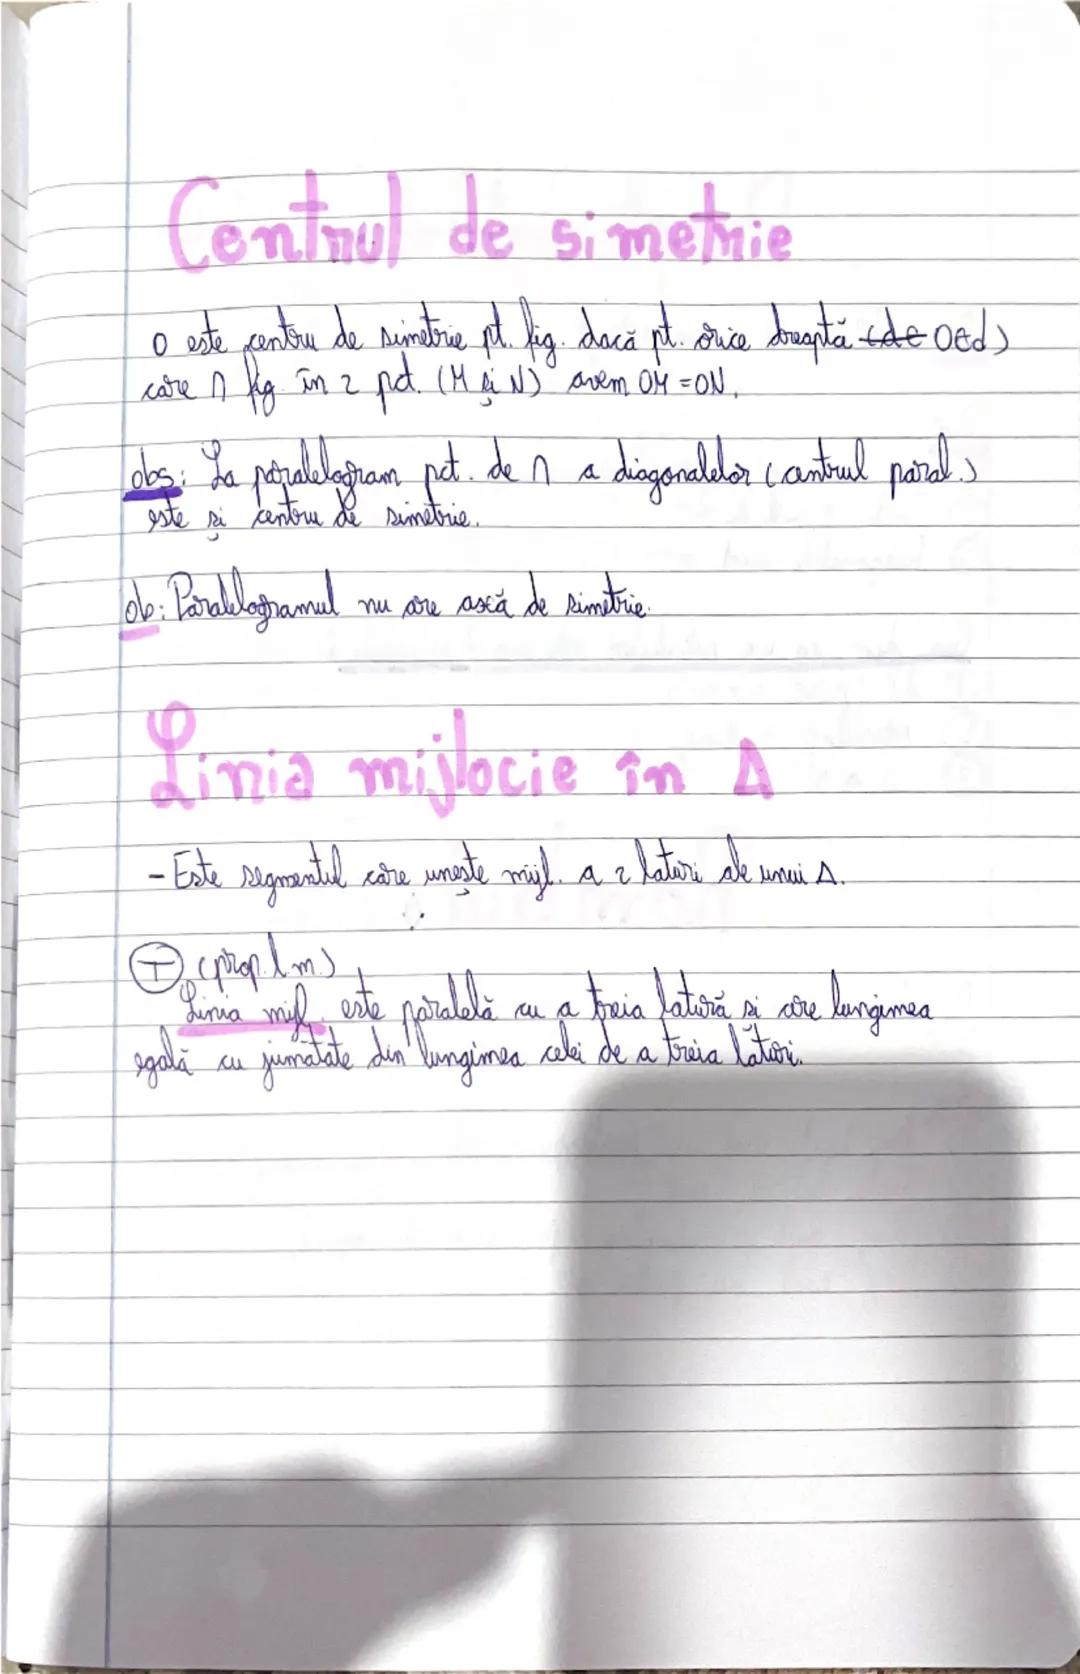 Centrul de simetrie
O este centru de simetrie pt. fig. dacă pt. orice dreaptă (d∈ O∈d)
care ∩ fig. în 2 pct. (M și N) avem OM = ON.
obs: La paralelogram pct. de ∩ a diagonalelor (centrul paral.)
este și centru de simetrie.
ob: Paralelogramul nu are axă de simetrie.
Linia mijlocie în Δ
- Este segmentul care unește mijl. a 2 laturi ale unui Δ.
Ⓣ (prop. l.m.)
Linia mijl. este paralelă cu a treia latură si are lungimea
egală cu jumătate din lungimea celei de a treia lături.